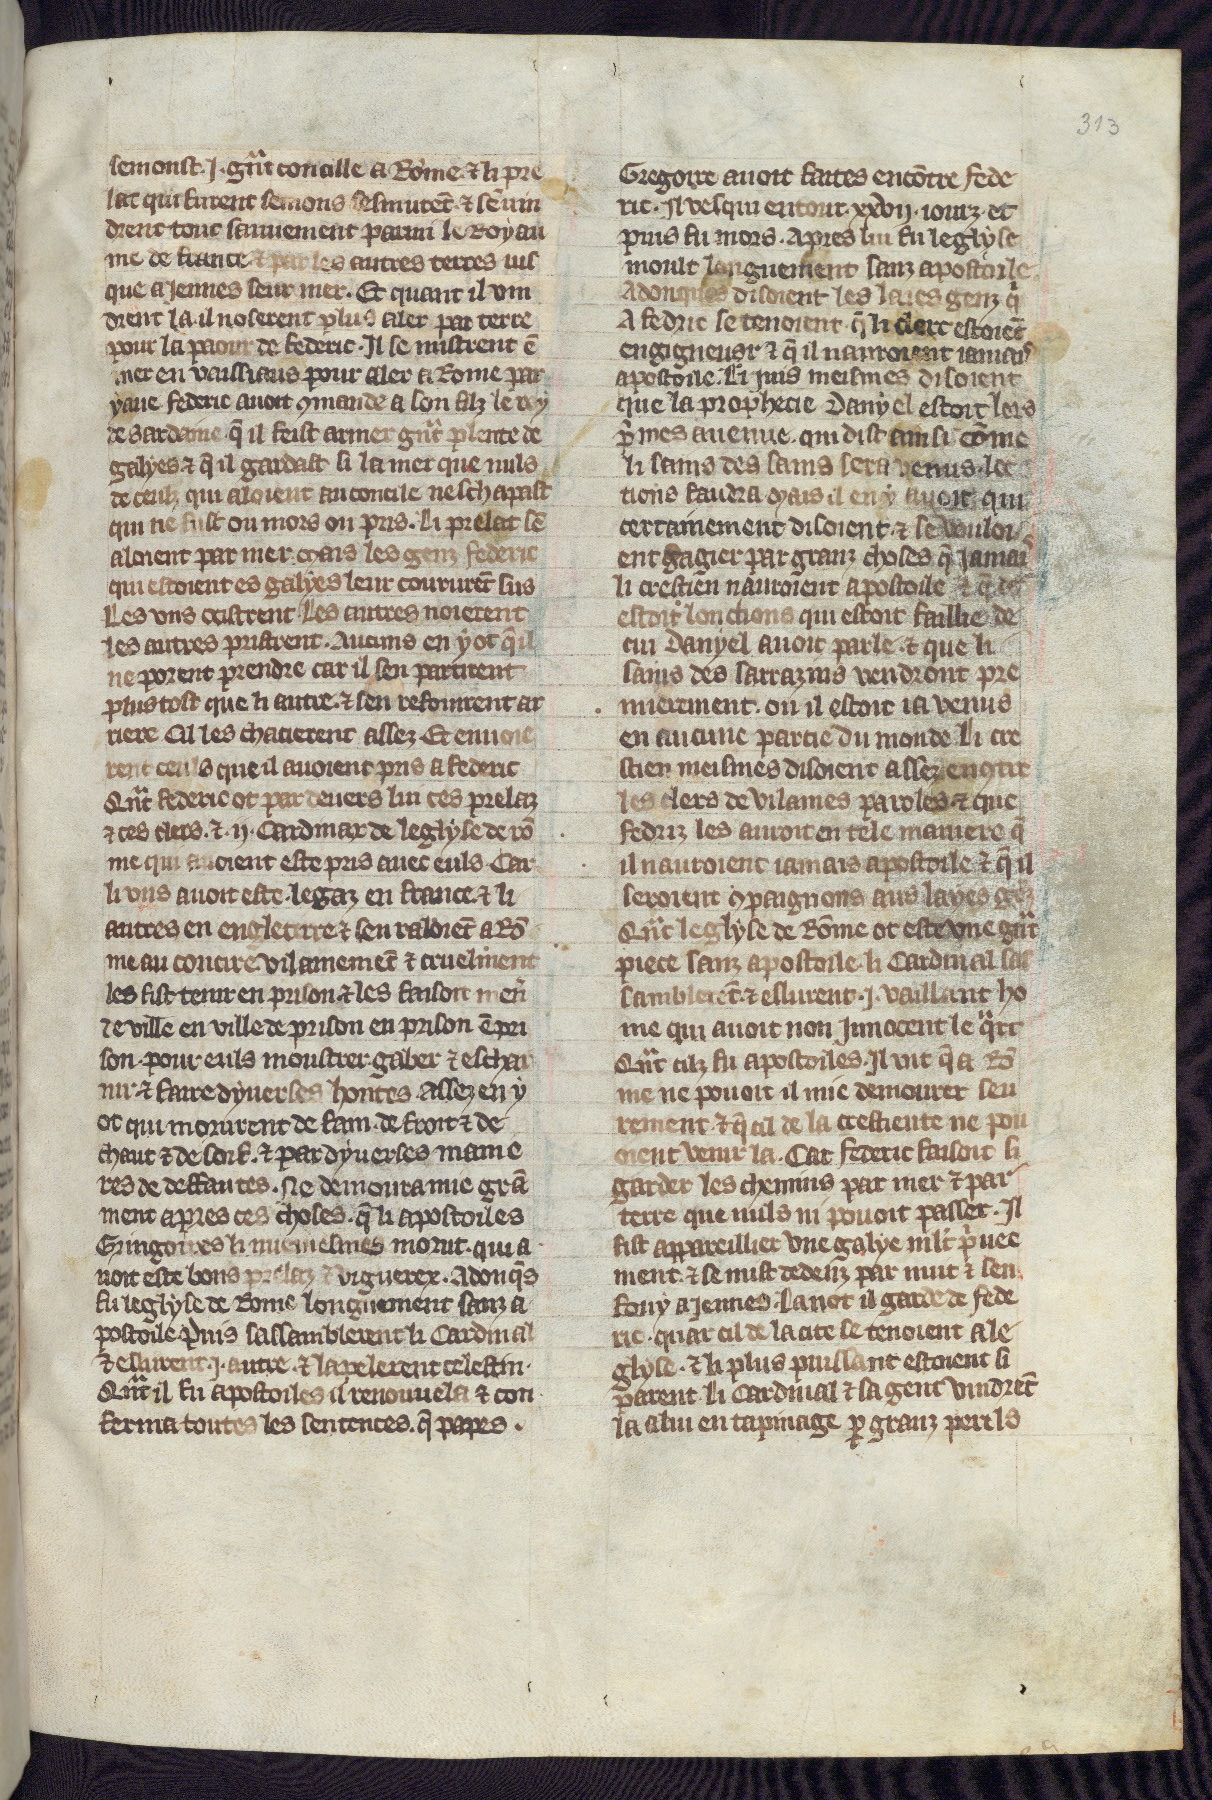 313
semonst .j. gñt concille a Rome. ⁊ li pre
lat qui furent semons sesmurẽt. ⁊ sẽ uin
drent tout sauuement parmi le Royau
me de france ⁊ par les autres terres ius
que a Jennes seur mer. Et quant il vin
drent la. il noserent plus aler par terre
pour la paour de federic. Il se mistrent ẽ
mer en vaissiaus pour aler a Rome par
yaue federic auoit 9mande a son filz le roy
de Sardaine. q̃ il feist armer gñt plente de
galyes ⁊ q̃ il gardast si la mer que nuls
de ceulz qui aloient au concile neschapast
qui ne fust ou mors ou pris. Li prelat sẽ
aloient par mer. mais les genz federic
qui estoient es galyes leur coururẽt sus
Les vns occistrent Les autres noierent
les autres pristrent. Aucuns en y ot q̃ il
ne porent prendre car il sen partirent
plus tost que li autre. ⁊ sen refouirent ar
riere Cil les chacierent assez Et enuoie
rent ceuls que il auoient pris a federic
Qñt federic ot par deuers lui ces prelaz
⁊ ces clers. ⁊ .ij. Cardinax de leglyse de rõ
me qui auoient este pris auec euls. Car
li vns auoit este legaz en france. ⁊ li
autres en engleterre ⁊ sen raloiẽt a Rõ
me au concire. vilainemẽt ⁊ cruelment
les fist tenir en prison. ⁊ les faisoit men̄
de ville en ville de prison en prison ẽ pri
son. pour euls moustrer. gaber ⁊ eschar
nir. ⁊ faire dyuerses hontes. Assez en y
ot qui morurent de faim. de froit ⁊ de
chaut ⁊ de soif. ⁊ par dyuerses manie
res de deffautes. Ne demoura mie grã
ment apres ces choses. q̃ li apostoiles
Gringoires li nuemesmes morut. qui a
uoit este bons prelaz ⁊ viguerex. Adonq̃s
fu leglyse de Rome longuement sanz a
postoile. Puis sassamblerent li Cardinal
⁊ eslurent .j. autre. ⁊ lapelerent celestin.
Qñt il fu apostoiles il renouuela ⁊ con
ferma toutes les sentences. q̃ papes.
Gregoire auoit faites encõtre fede
ric. Il vesqui entour .xxvij. iourz. et
puis fu mors. Apres lui fu leglyse
moult longuement sanz apostoile
Adonques disoient les laies genz q̃
A fedric se tenoient. q̃ li clerc estoiẽt
engigneusr ⁊ q̃ il nauroient iamais
apostoile. Li juis meismes disoient
que la prophecie Danyel estoit lors
p̃mes auenue. qui dist ainsi cõme
li sains des sains sera venus. lec
tions faudra. Mais il en y auoit qui
certainement disoient. ⁊ se vouloi
ent gagier par granz choses q̃ Jamais
li crestien nauroient apostoile
estoit lonctions qui estoit faillie de
cui Danyel auoit parle. ⁊ que li
sains des sarrazins vendront pre
mierement. ou il estoit ia venus
en aucune partie du monde. Li cre
stien meismes disoient assez en9tre
les clers de vilaines paroles. ⁊ que
fedriz les auroit en tele maniere q̃
il nauroient iamais apostoile ⁊ q̃ il
seroient 9paignons aus layes
Qñt leglyse de Rõme ot este vne gñt
piece sanz apostoile. li Cardinal sas
samblerẽt. ⁊ eslurent .j. vaillant ho
me qui auoit non Jnnocent le q̃rt
Qñt cilz fu apostoiles. Il vit q̃ a Rõ
me ne pouoit il mie demourer seu
rement. ⁊ q̃ cil de la crestiente ne pou
oient venir la. Car federic faisoit si
garder les chemins par mer ⁊ par
terre que nuls ni pouoit passer. Il
fist appareillier vne galye ml̃t p̃uee
ment. ⁊ se mist dedenz par nuit ⁊ sen
fouy a Jennes. La not il garde de fede
ric. quar cil de la cite se tenoient a le
glyse. ⁊ li plus puissant estoient si
parent. Li Cardinal ⁊ sa gent vindrẽt
la a lui en tapinage ꝑ granz perils